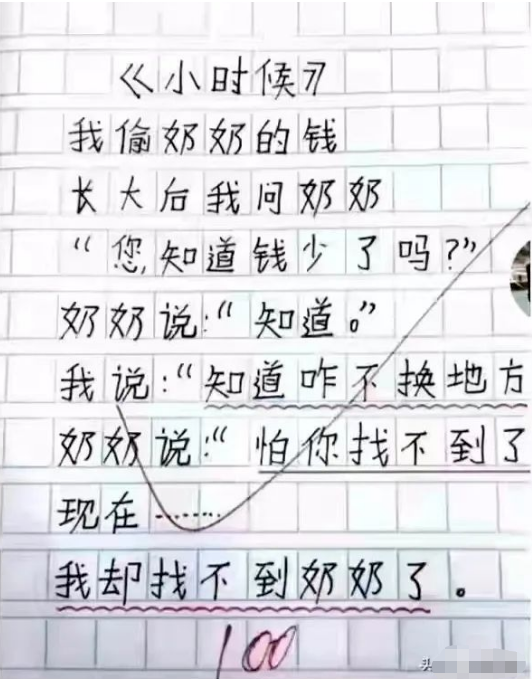 《小时候》
我偷奶奶的钱
长大后我问奶奶
“您知道钱少了吗?”
奶奶说:“知道。”
我说:“知道咋不换地方
奶奶说:“怕你找不到了
现在………
我却找不到奶奶了。
100
头